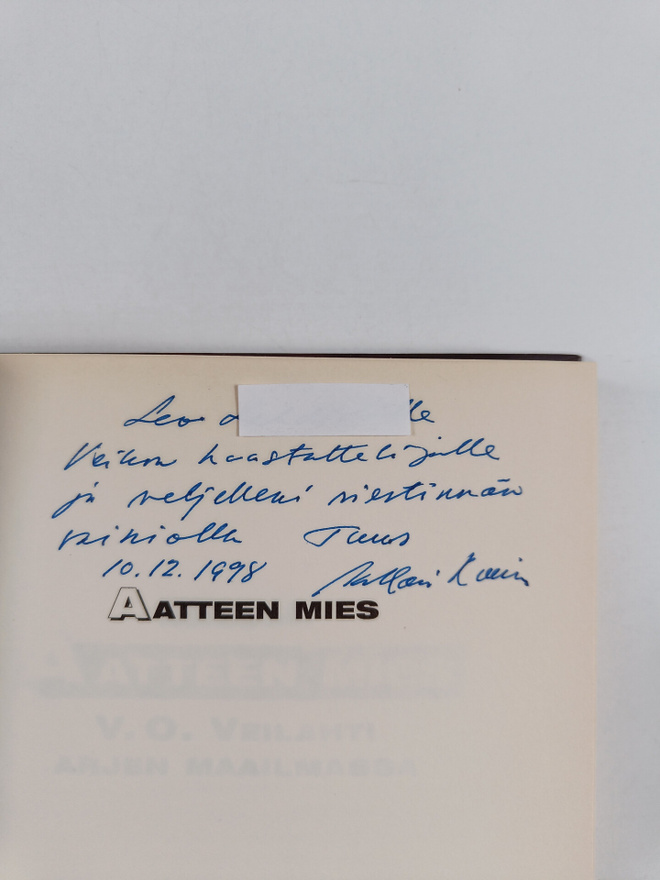 Leo
Veikon haastattelijalle
ja veljelleni viestinnän
vainiolla Tuus
10.12.1998
AATTEEN MIES
AATTEEN MIES
V. O. VEILAHTI
ARJEN MAAILMASSA